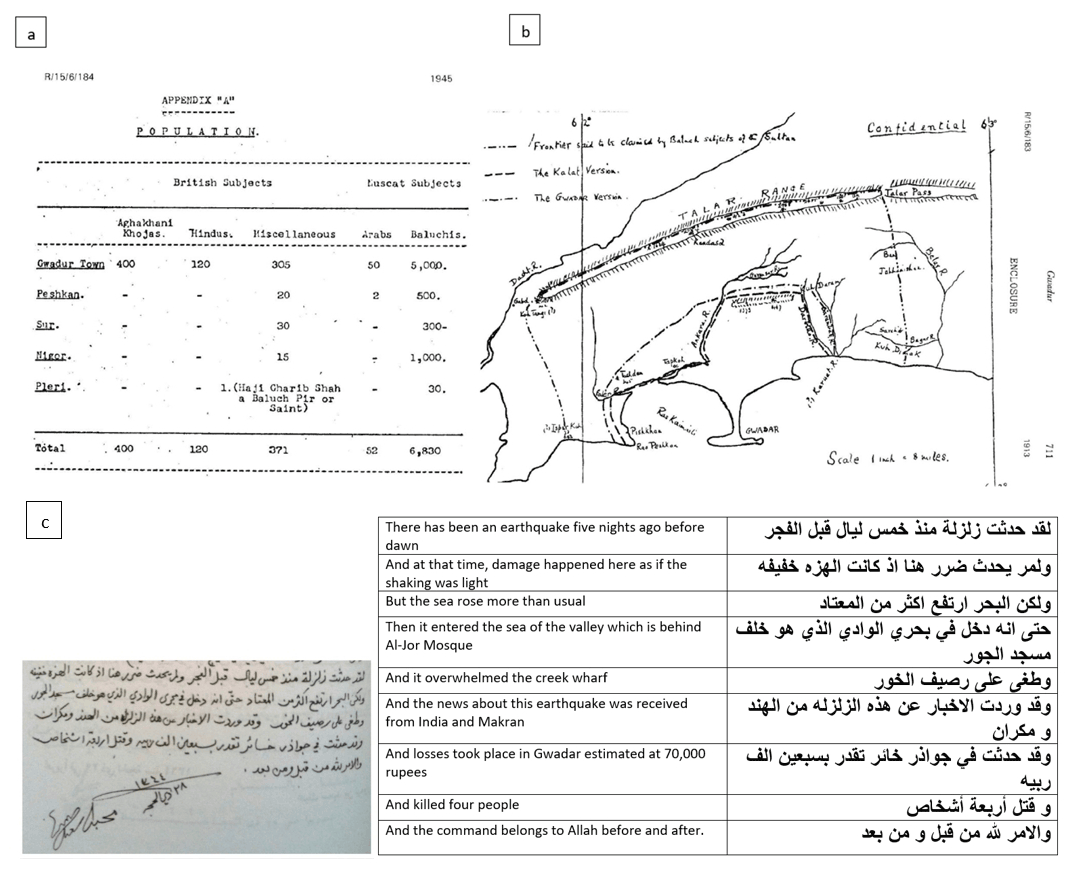 a
R/15/6/184 1945
APPENDIX "A"
POPULATION.
British Subjects Muscat Subjects
Aghakhani Khojas. Hindus. Miscellaneous Arabs Baluchis.
Gwadur Town 400 120 305 50 5,000.
Peshkan. - - 20 2 500.
Sur. - - 30 - 300-
Nigor. - - 15 - 1,000.
Pleri. - - 1.(Haji Gharib Shah a Baluch Pir or Saint) - 30.
Total 400 120 371 52 6,830
b
62° Confidential 63°
Frontier said to be claimed by Baluch subjects of Sultan
The Kalat Version.
The Gwadar Version.
TALAR RANGE
Talar Pass
Dasht R.
Ankara R.
Pishkan
Ras Peshkan
GWADAR
Scale 1 inch = 8 miles.
R/15/6/183
ENCLOSURE
Gwadur
711
1913
c
لقد حدثت زلزلة منذ خمس ليال قبل الفجر ولم يحدث ضرر هنا اذ كانت الهزه خفيفه
ولكن البحر ارتفع اكثر من المعتاد حتى انه دخل في مجرى الوادي الذي هو خلف مسجد الجور
وطغى على رصيف الخور وقد وردت الاخبار عن هذه الزلزله من الهند ومكران
وقد حدثت في جواذر خسائر تقدر بسبعين الف ربيه وقتل اربعة اشخاص
والامر لله من قبل ومن بعد .
There has been an earthquake five nights ago before dawn
لقد حدثت زلزلة منذ خمس ليال قبل الفجر
And at that time, damage happened here as if the shaking was light
ولمر يحدث ضرر هنا اذ كانت الهزه خفيفه
But the sea rose more than usual
ولكن البحر ارتفع اكثر من المعتاد
Then it entered the sea of the valley which is behind Al-Jor Mosque
حتى انه دخل في بحري الوادي الذي هو خلف مسجد الجور
And it overwhelmed the creek wharf
وطغى على رصيف الخور
And the news about this earthquake was received from India and Makran
وقد وردت الاخبار عن هذه الزلزله من الهند و مكران
And losses took place in Gwadar estimated at 70,000 rupees
وقد حدثت في جواذر خائر تقدر بسبعين الف ربيه
And killed four people
و قتل أربعة أشخاص
And the command belongs to Allah before and after.
والامر لله من قبل و من بعد